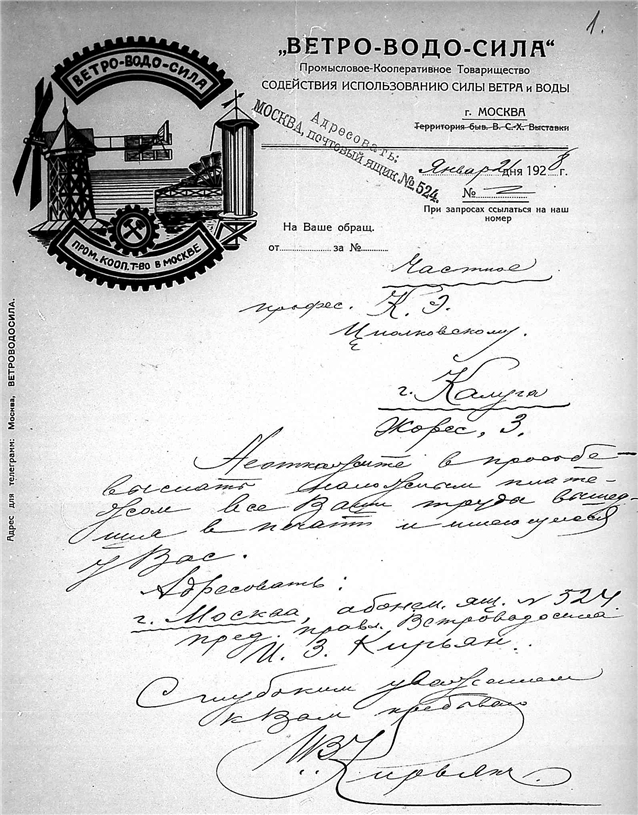 1.
ВЕТРО-ВОДО-СИЛА
ПРОМ. КООП. Т-ВО В МОСКВЕ
„ВЕТРО-ВОДО-СИЛА“
Промысловое-Кооперативное Товарищество
СОДЕЙСТВИЯ ИСПОЛЬЗОВАНИЮ СИЛЫ ВЕТРА и ВОДЫ
г. МОСКВА
Территория быв. В. С.-Х. Выставки
Адресовать:
МОСКВА, почтовый ящик № 524.
Январ 21 дня 1928 г.
№ 2
При запросах ссылаться на наш
номер
На Ваше обращ.
от за №
Частное
профес. К. Э.
Циолковскому.
г. Калуга
Жорес, 3.
Неоткажите в прозьбе
выслать наложным плате-
жом все Ваши труды вышед-
шие в печати и имеющиеся
у Вас.
Адресовать:
г. Москва, абонем. ящ. № 524
пред. правл. Ветроводосила
И. З. Кирьян.
С глубоким уважением
к Вам пребываю
Кирьян.
Адрес для телеграмм: Москва, ВЕТРОВОДОСИЛА.